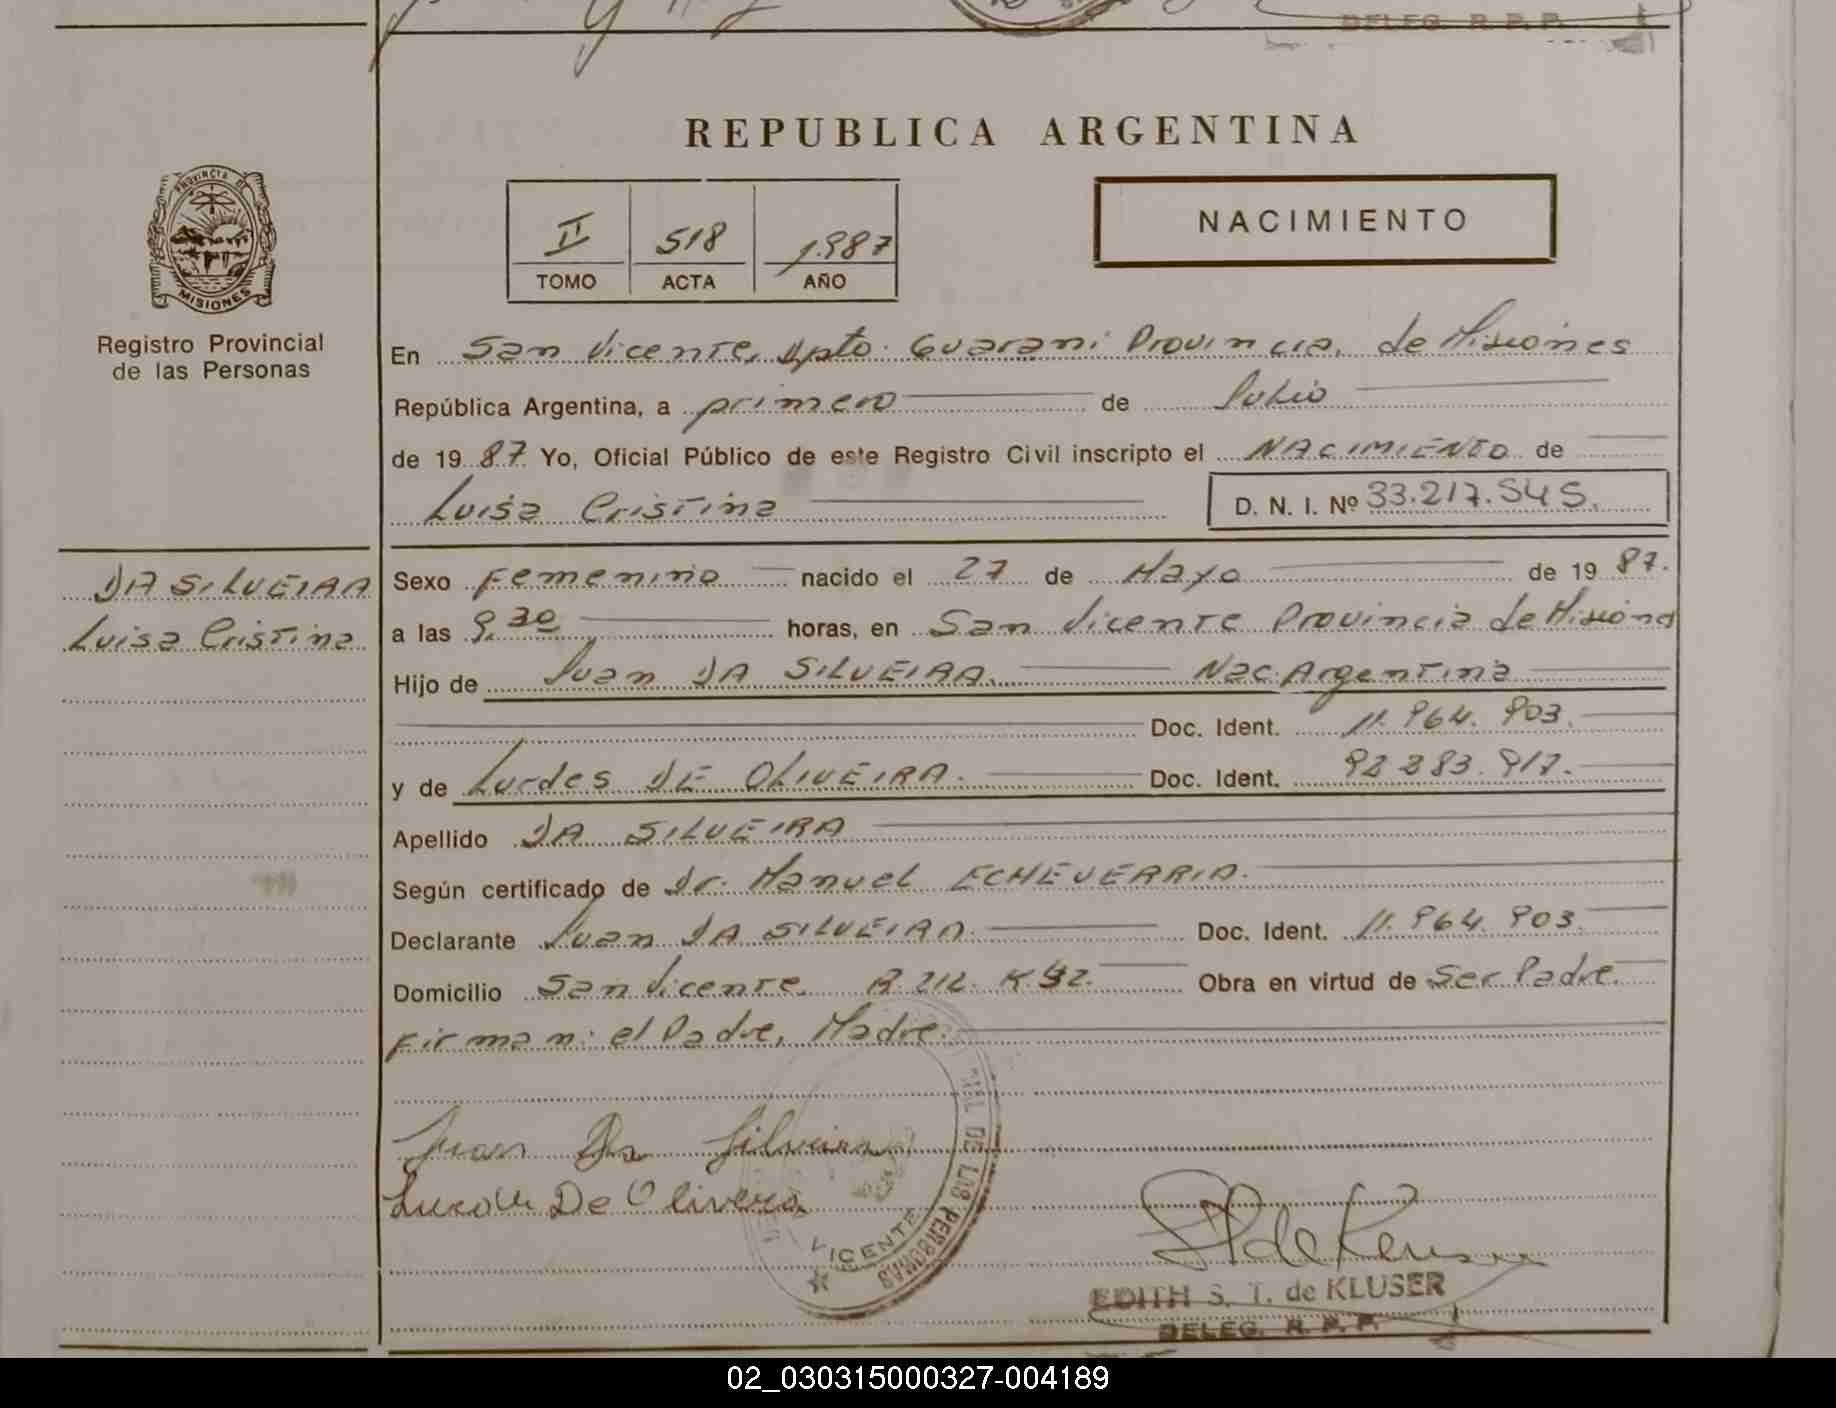 DELEG. R. P. P.
REPUBLICA ARGENTINA
PROVINCIA DE
MISIONES
Registro Provincial
de las Personas
II 518 1.987
TOMO ACTA AÑO
NACIMIENTO
En San Vicente, Dpto. Guarani Provincia, de Misiones
República Argentina, a primero de Julio
de 19 87 Yo, Oficial Público de este Registro Civil inscripto el NACIMIENTO de
Luisa Cristina D. N. I. Nº 33.217.545.
DA SILVEIRA
Luisa Cristina
Sexo Femenino nacido el 27 de Mayo de 19 87.
a las 9,30 horas, en San Vicente Provincia de Misiones
Hijo de Juan DA SILVEIRA. Nac. Argentina
Doc. Ident. 11.964.903.
y de Lurdes DE OLIVEIRA. Doc. Ident. 92 383.917.
Apellido DA SILVEIRA
Según certificado de Dr. Manuel ECHEVERRIA.
Declarante Juan DA SILVEIRA. Doc. Ident. 11.964.903.
Domicilio San Vicente. R. 212. K 92. Obra en virtud de Ser Padre.
Firman: el Padre, Madre.
Juan Da Silveira
De Olivera
DE LAS PERSONAS
VICENTE
EDITH S. T. de KLUSER
DELEG. R. P. P.
02_030315000327-004189